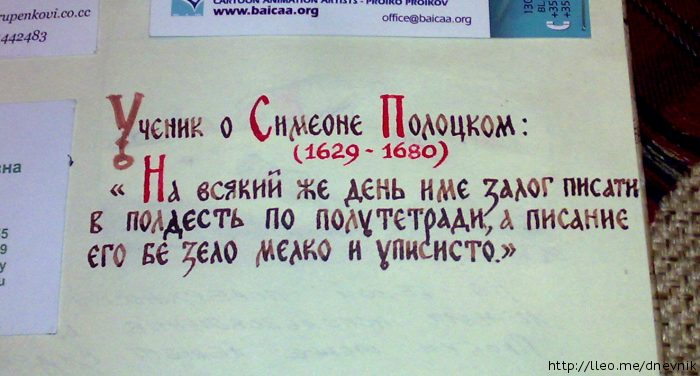 CARTOON ANIMATION ARTISTS - PROIKO PROIKOV
www.baicaa.org
office@baicaa.org
rupenkovi.co.cc
442483
Ученик о Симеоне Полоцком:
(1629 - 1680)
« На всякий же день име залог писати
в полдесть по полутетради, а писание
его бе зело мелко и уписисто.»
http://lleo.me/dnevnik